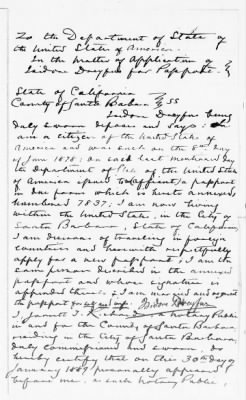 To the Department of State of
the United States of America.
In the Matter of Application of
Isidore Dreyfus for Passport.
State of California
County of Santa Barbara ss
Isidore Dreyfus being
duly sworn deposes and says: I
am a citizen of the United States of
America and was such on the 8th day
of Jan 1878; on said last mentioned day
the Department of State of the United States
of America issued to (affiant) a passport
in due form which is hereto annexed
numbered 7837; I am now living
within the United States, in the City of
Santa Barbara, State of California,
I am desirous of traveling in foreign
countries and herewith respectfully
apply for a new passport; I am the
same person described in the annexed
passport and whose signature is
appended thereto; I am married and request
the passport for self and wife. Isidore Dreyfus
I, Jarrett T. Richards a notary Public
in and for the County of Santa Barbara
residing in the City of Santa Barbara
duly commissioned and sworn, do
hereby certify that on this 30th day of
January 1889 personally appeared
before me, as such Notary Public,